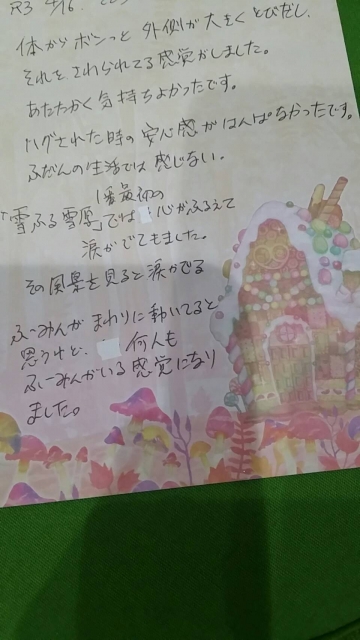 R3 4/16.
体がボンっと 外側が大きくとびだし、
それを、さわられてる感覚がしました。
あたたかく気持ちよかったです。
ハグされた時の安心感がはんぱなかったです。
ふだんの生活では感じない。
1番最初の
「雪ふる雪原」では 心がふるえて
涙がでてもました。
その風景を見ると涙がでる
ふーみんがまわりに動いてると
思うけど、 何人も
ふーみんがいる感覚になり
ました。